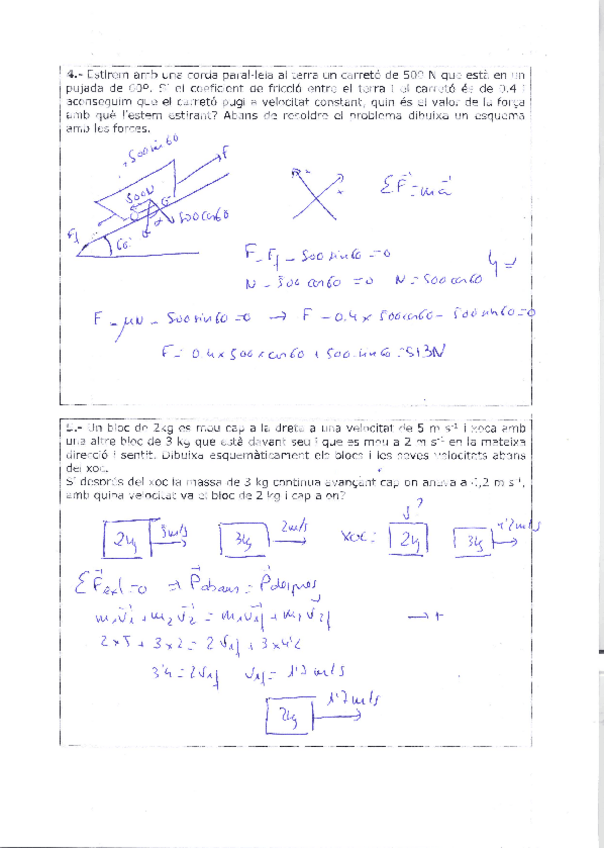 4.- Estirem amb una corda paral·lela al terra un carretó de 500 N que està en un
pujada de 60º. Si el coeficient de fricció entre el terra i el carretó és de 0.4 i
aconseguim que el carretó pugi a velocitat constant, quin és el valor de la força
amb què l'estem estirant? Abans de resoldre el problema dibuixa un esquema
amb les forces.
500 sin 60
F
500N
500 cos 60
Ff
60º
ΣF = ma
F - Ff - 500 sin 60 = 0
N - 500 cos 60 = 0 N = 500 cos 60
F - μN - 500 sin 60 = 0 → F - 0.4 x 500 cos 60 - 500 sin 60 = 0
F = 0.4 x 500 x cos 60 + 500 sin 60 = 513 N
5.- Un bloc de 2kg es mou cap a la dreta a una velocitat de 5 m s⁻¹ i xoca amb
una altre bloc de 3 kg que està davant seu i que es mou a 2 m s⁻¹ en la mateixa
direcció i sentit. Dibuixa esquemàticament els blocs i les seves velocitats abans
del xoc.
Si després del xoc la massa de 3 kg continua avançant cap on anava a 4,2 m s⁻¹,
amb quina velocitat va el bloc de 2 kg i cap a on?
2kg 5m/s 3kg 2m/s xoc: 2kg ? 3kg 4'2m/s
ΣF ext = 0 ⇒ P abans = P despres
m₁v₁ + m₂v₂ = m₁v₁f + m₂v₂f → +
2x5 + 3x2 = 2 v₁f + 3x4'2
3'4 = 2v₁f v₁f = 1'7 m/s
2kg 1'7 m/s